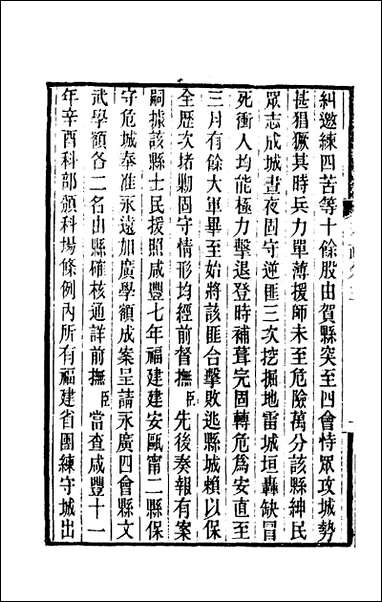 糾邀練四苦等十餘股由賀縣突至四會恃眾攻城勢
甚猖獗其時兵力單薄援師未至危險萬分該縣紳民
眾志成城晝夜固守逆匪三次挖掘地雷城垣轟缺冒
死衝人均能極力擊退登時補葺完固轉危為安直至
三月有餘大軍畢至始將該匪台擊敗逃縣城賴以保
全歷次堵剿固守情形均經前督撫臣先後奏報有案
嗣據該縣士民援照咸豐七年福建建安甌甯二縣保
守危城奉准永遠加廣學額成案呈請永廣四會縣文
武學額各二名由縣確核通詳前撫臣當查咸豐十一
年辛酉科部頒科場條例內所有福建省團練守城出